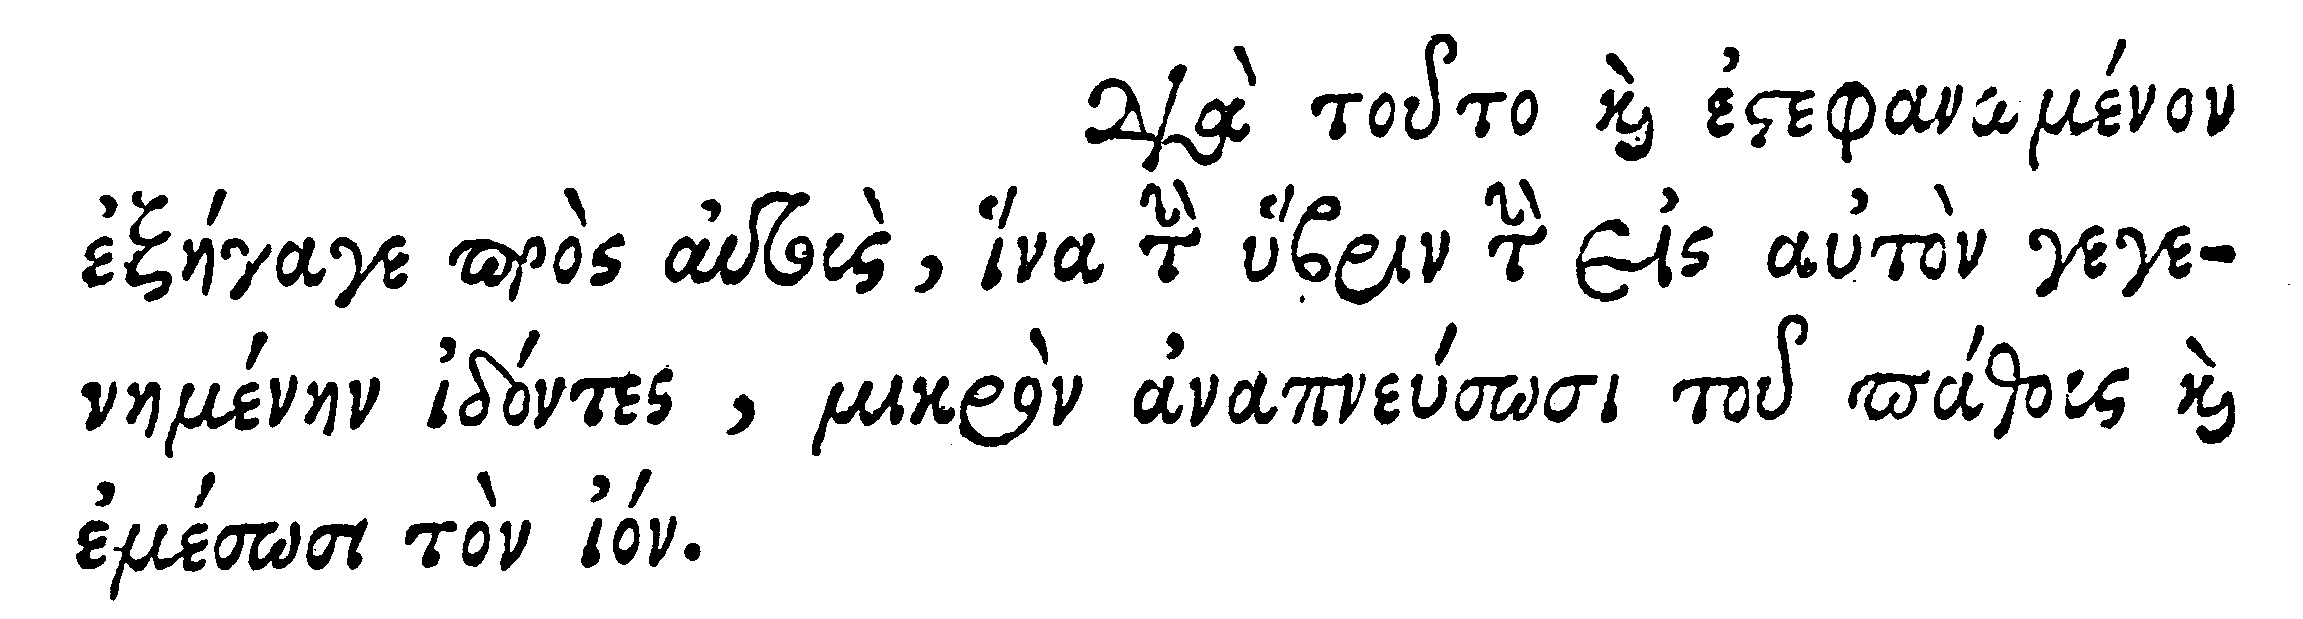 Διὰ τοῦτο καὶ ἐστεφανωμένον
ἐξήγαγε πρὸς αὐτοὺς, ἵνα τὴν ὕβριν τὴν εἰς αὐτὸν γεγε-
νημένην ἰδόντες, μικρὸν ἀναπνεύσωσι τοῦ πάθους καὶ
ἐμέσωσι τὸν ἰόν.